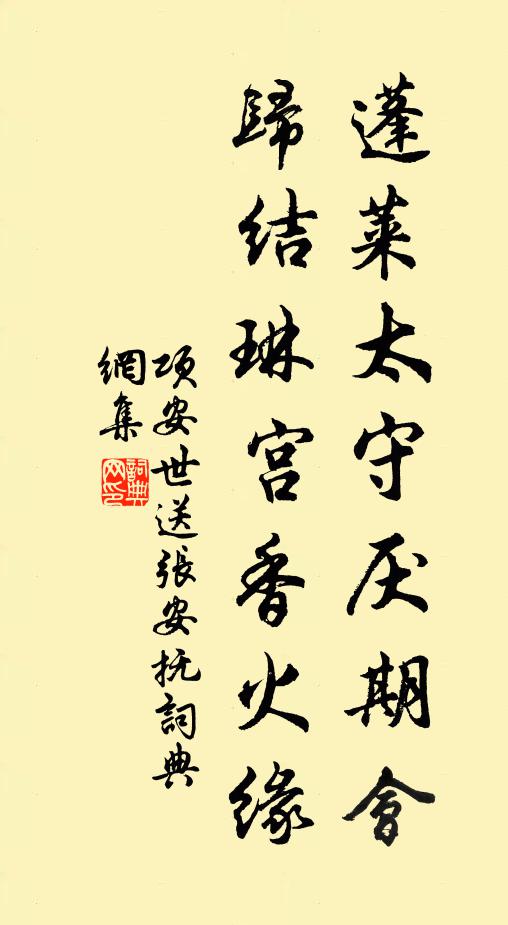 蓬莱太守厌期會
歸结琳宫香火缘
项安世送張安抚詞典
網集
詞典
网印